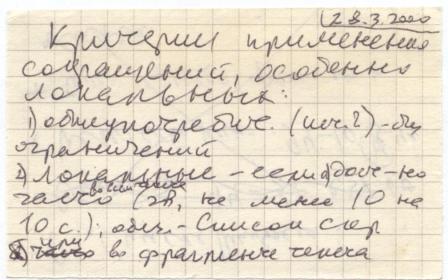 28.3.2000
Критерии применения
сокращений, особенно
локальных:
1) общеупотребит. (исч.?) - без
ограничений
2) локальные - если дост-но
часто (эв, не менее 10 на
10 с.), обяз. - Список сокр
или во фрагменте текста